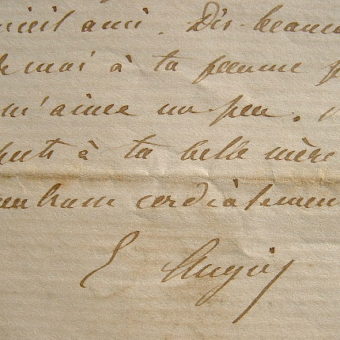 vieil ami. Dis beauco
de moi à ta femme p
m'aime un peu.
pects à ta belle mère
cordialement
E Augier